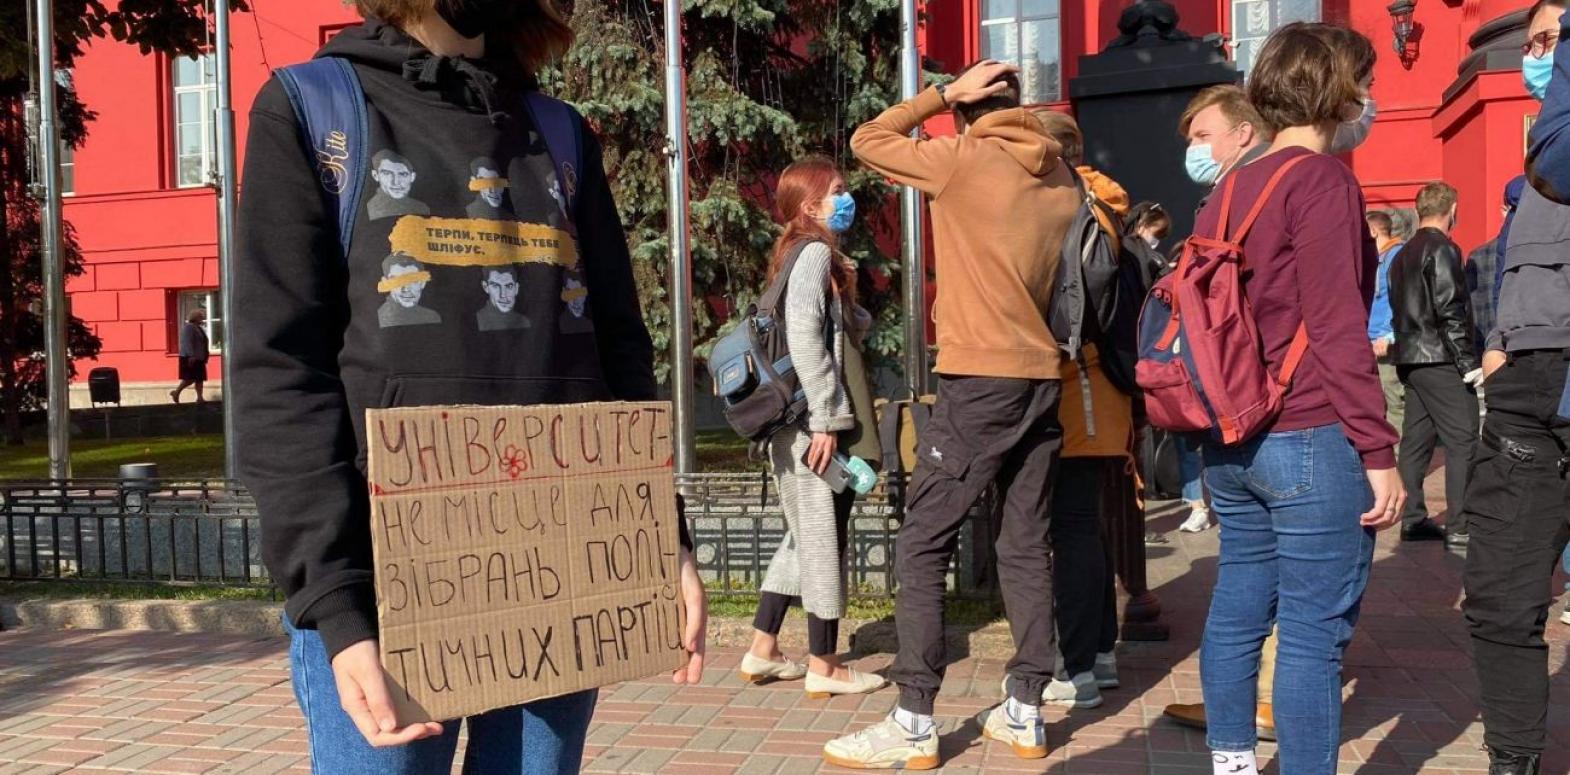 Kiie
ТЕРПИ, ТЕРПЕЦЬ ТЕБЕ
ШЛІФУЄ.
УНІВЕРСИТЕТ-
НЕ МІСЦЕ ДЛЯ
ЗІБРАНЬ ПОЛІ-
ТИЧНИХ ПАРТІЙ